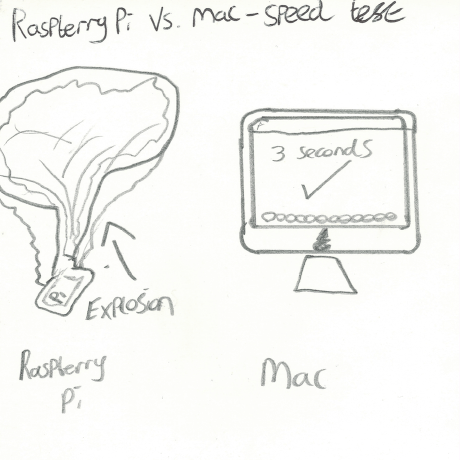 Raspberry Pi Vs. Mac - speed test
3 seconds
Pi
Explosion
Raspberry
Pi
Mac